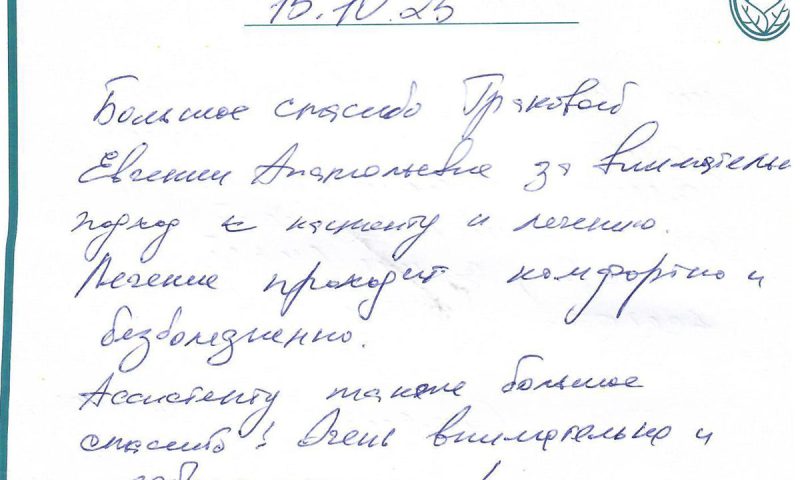 15.10.25
Большое спасибо Граковой
Евгении Анатольевне за внимательн
подход к пациенту и лечению.
Лечение проходит комфортно и
безболезненно.
Ассистенту также большое
спасибо! Очень внимательно и